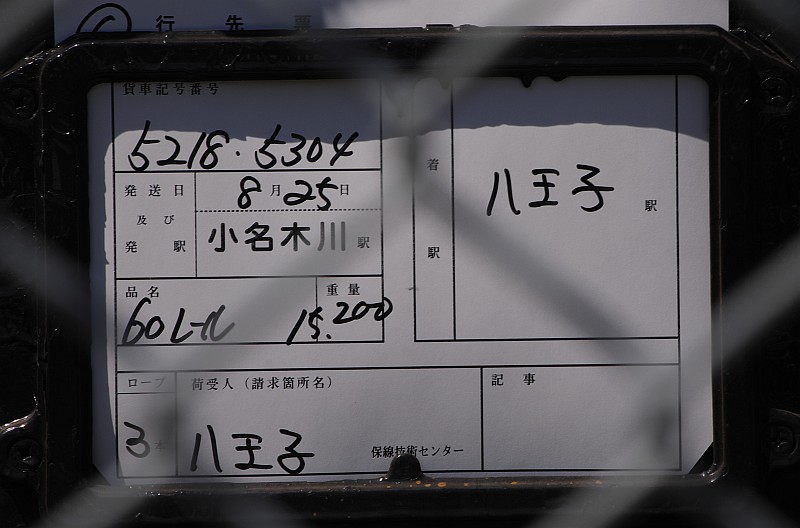 Ⓒ 行先票
貨車記号番号
5218・5304
発送日及び発駅
8月25日
小名木川駅
品名
60レール
重量
15.200
着駅
八王子駅
ロープ
3本
荷受人(請求箇所名)
八王子 保線技術センター
記事